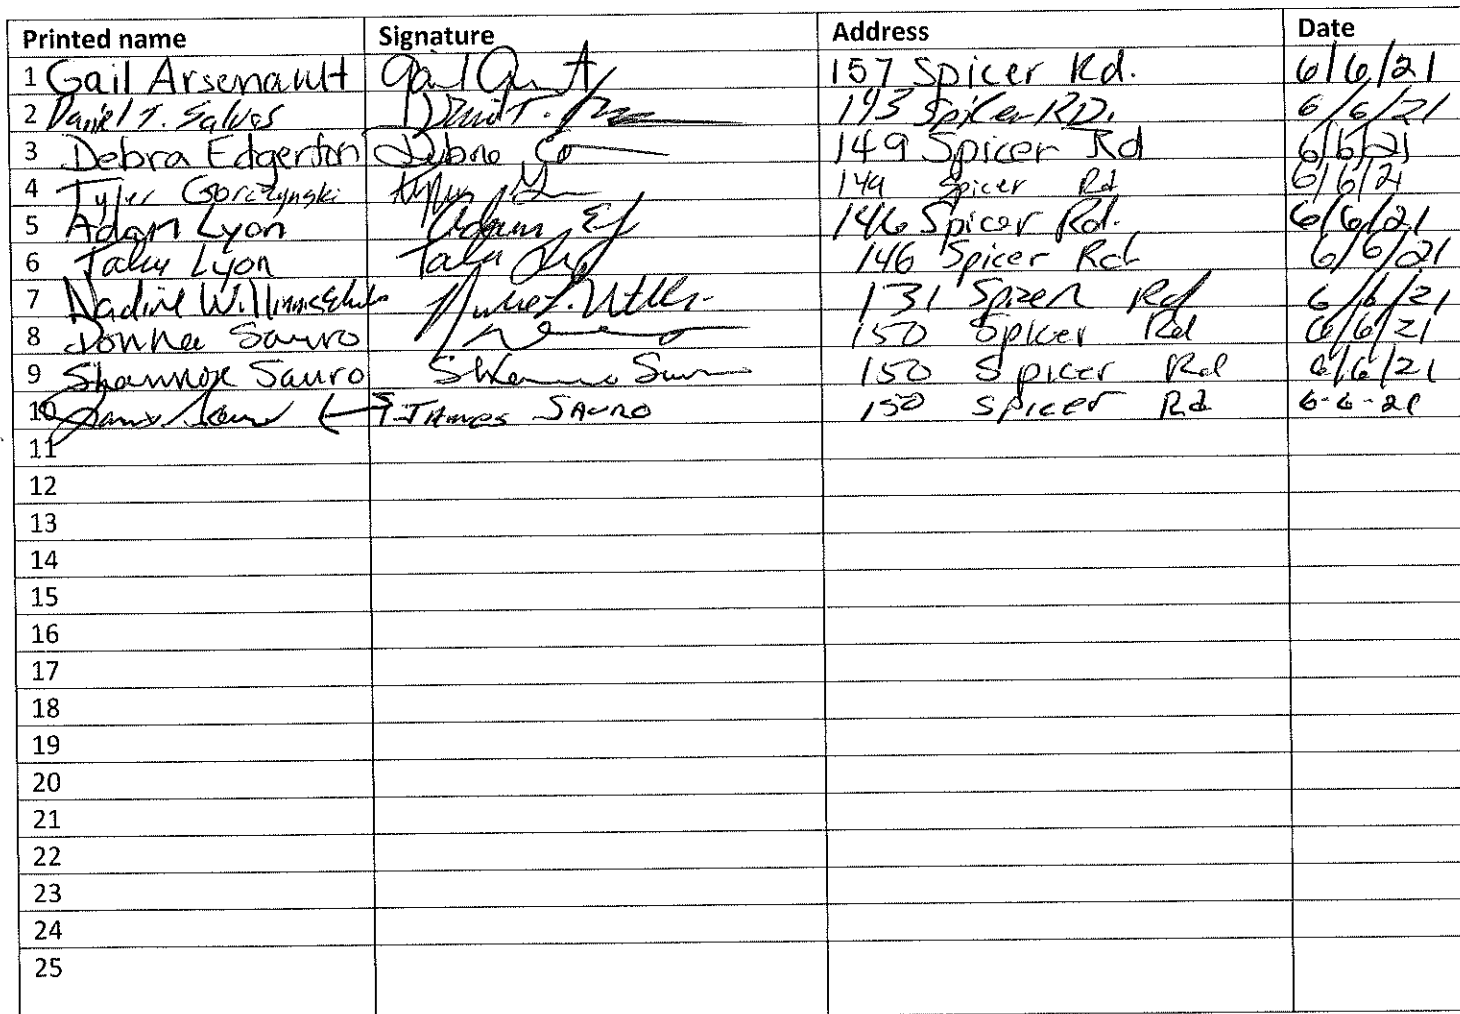 Printed name Signature Address Date
1 Gail Arsenault 157 Spicer Rd. 6/6/21
2 Daniel T. Salvas 143 Spicer RD. 6/6/21
3 Debra Edgerton Debra 149 Spicer Rd 6/6/21
4 Tyler Gorczynski Tyler 149 Spicer Rd 6/6/21
5 Adam Lyon Adam 146 Spicer Rd. 6/6/21
6 Lyon 146 Spicer Rd 6/6/21
7 Nadine 131 Spicer Rd 6/6/21
8 Donna Sauro 150 Spicer Rd 6/6/21
9 Shannon Sauro 150 Spicer Rd 6/6/21
10 James Sauro 150 Spicer Rd 6-6-21
11
12
13
14
15
16
17
18
19
20
21
22
23
24
25